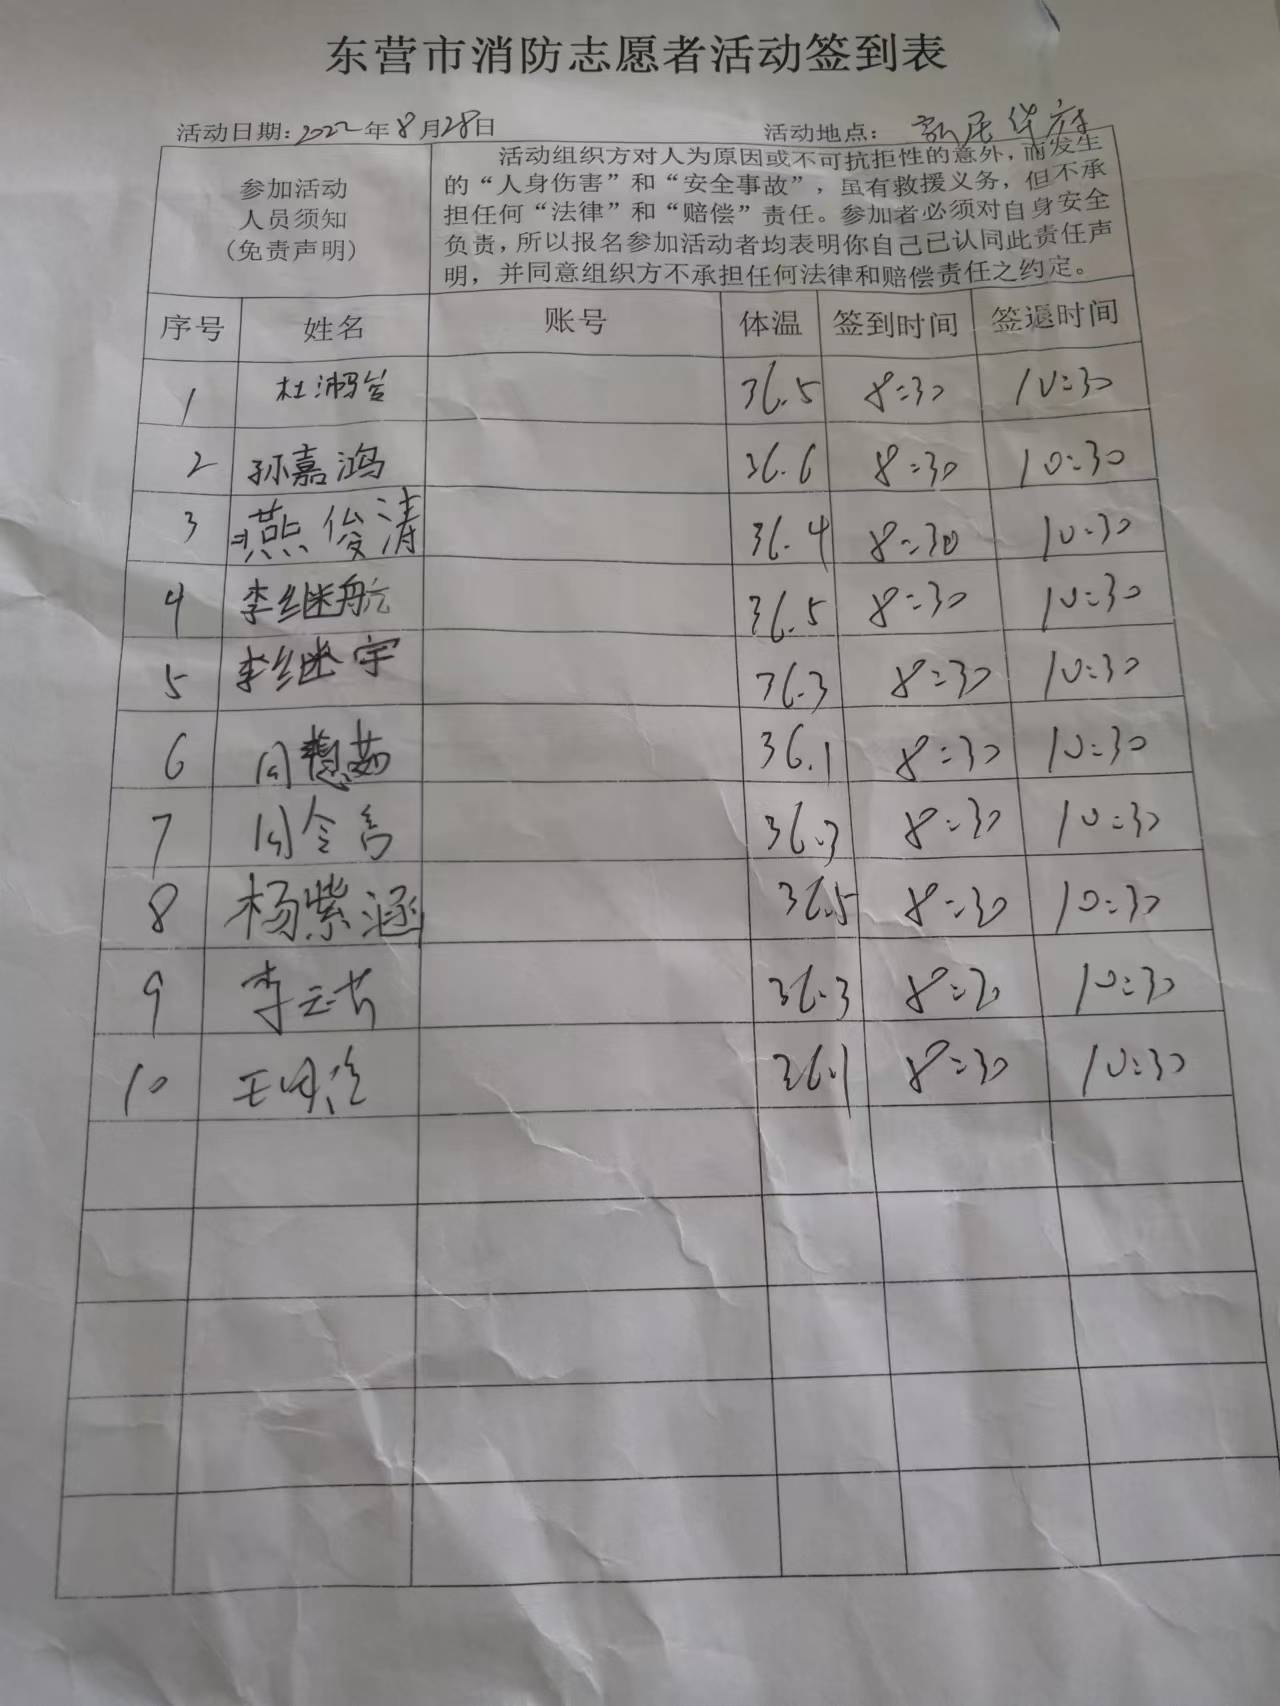 东营市消防志愿者活动签到表
活动日期：2022年8月28日 活动地点： 华府
参加活动
人员须知
（免责声明）
活动组织方对人为原因或不可抗拒性的意外，而发生
的“人身伤害”和“安全事故”，虽有救援义务，但不承
担任何“法律”和“赔偿”责任。参加者必须对自身安全
负责，所以报名参加活动者均表明你自己已认同此责任声
明，并同意组织方不承担任何法律和赔偿责任之约定。
序号 姓名 账号 体温 签到时间 签退时间
1 杜 36.5 8:30 10:30
2 孙嘉鸿 36.6 8:30 10:30
3 燕俊涛 36.4 8:30 10:30
4 李继航 36.5 8:30 10:30
5 李继宇 36.3 8:30 10:30
6 周慧茹 36.1 8:30 10:30
7 周令 36.3 8:30 10:30
8 杨紫涵 36.5 8:30 10:30
9 李 36.3 8:30 10:30
10 王 36.1 8:30 10:30